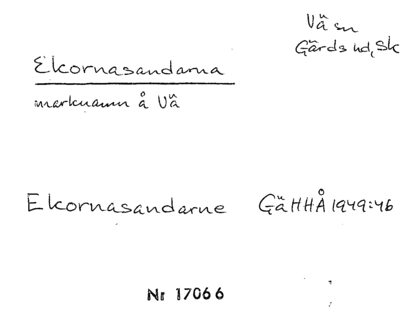 Vä sn
Gärds hd, Sk
Ekornasandarna
marknamn å Vä
Ekornasandarne GäHHÅ 1949:46
Nr 17066